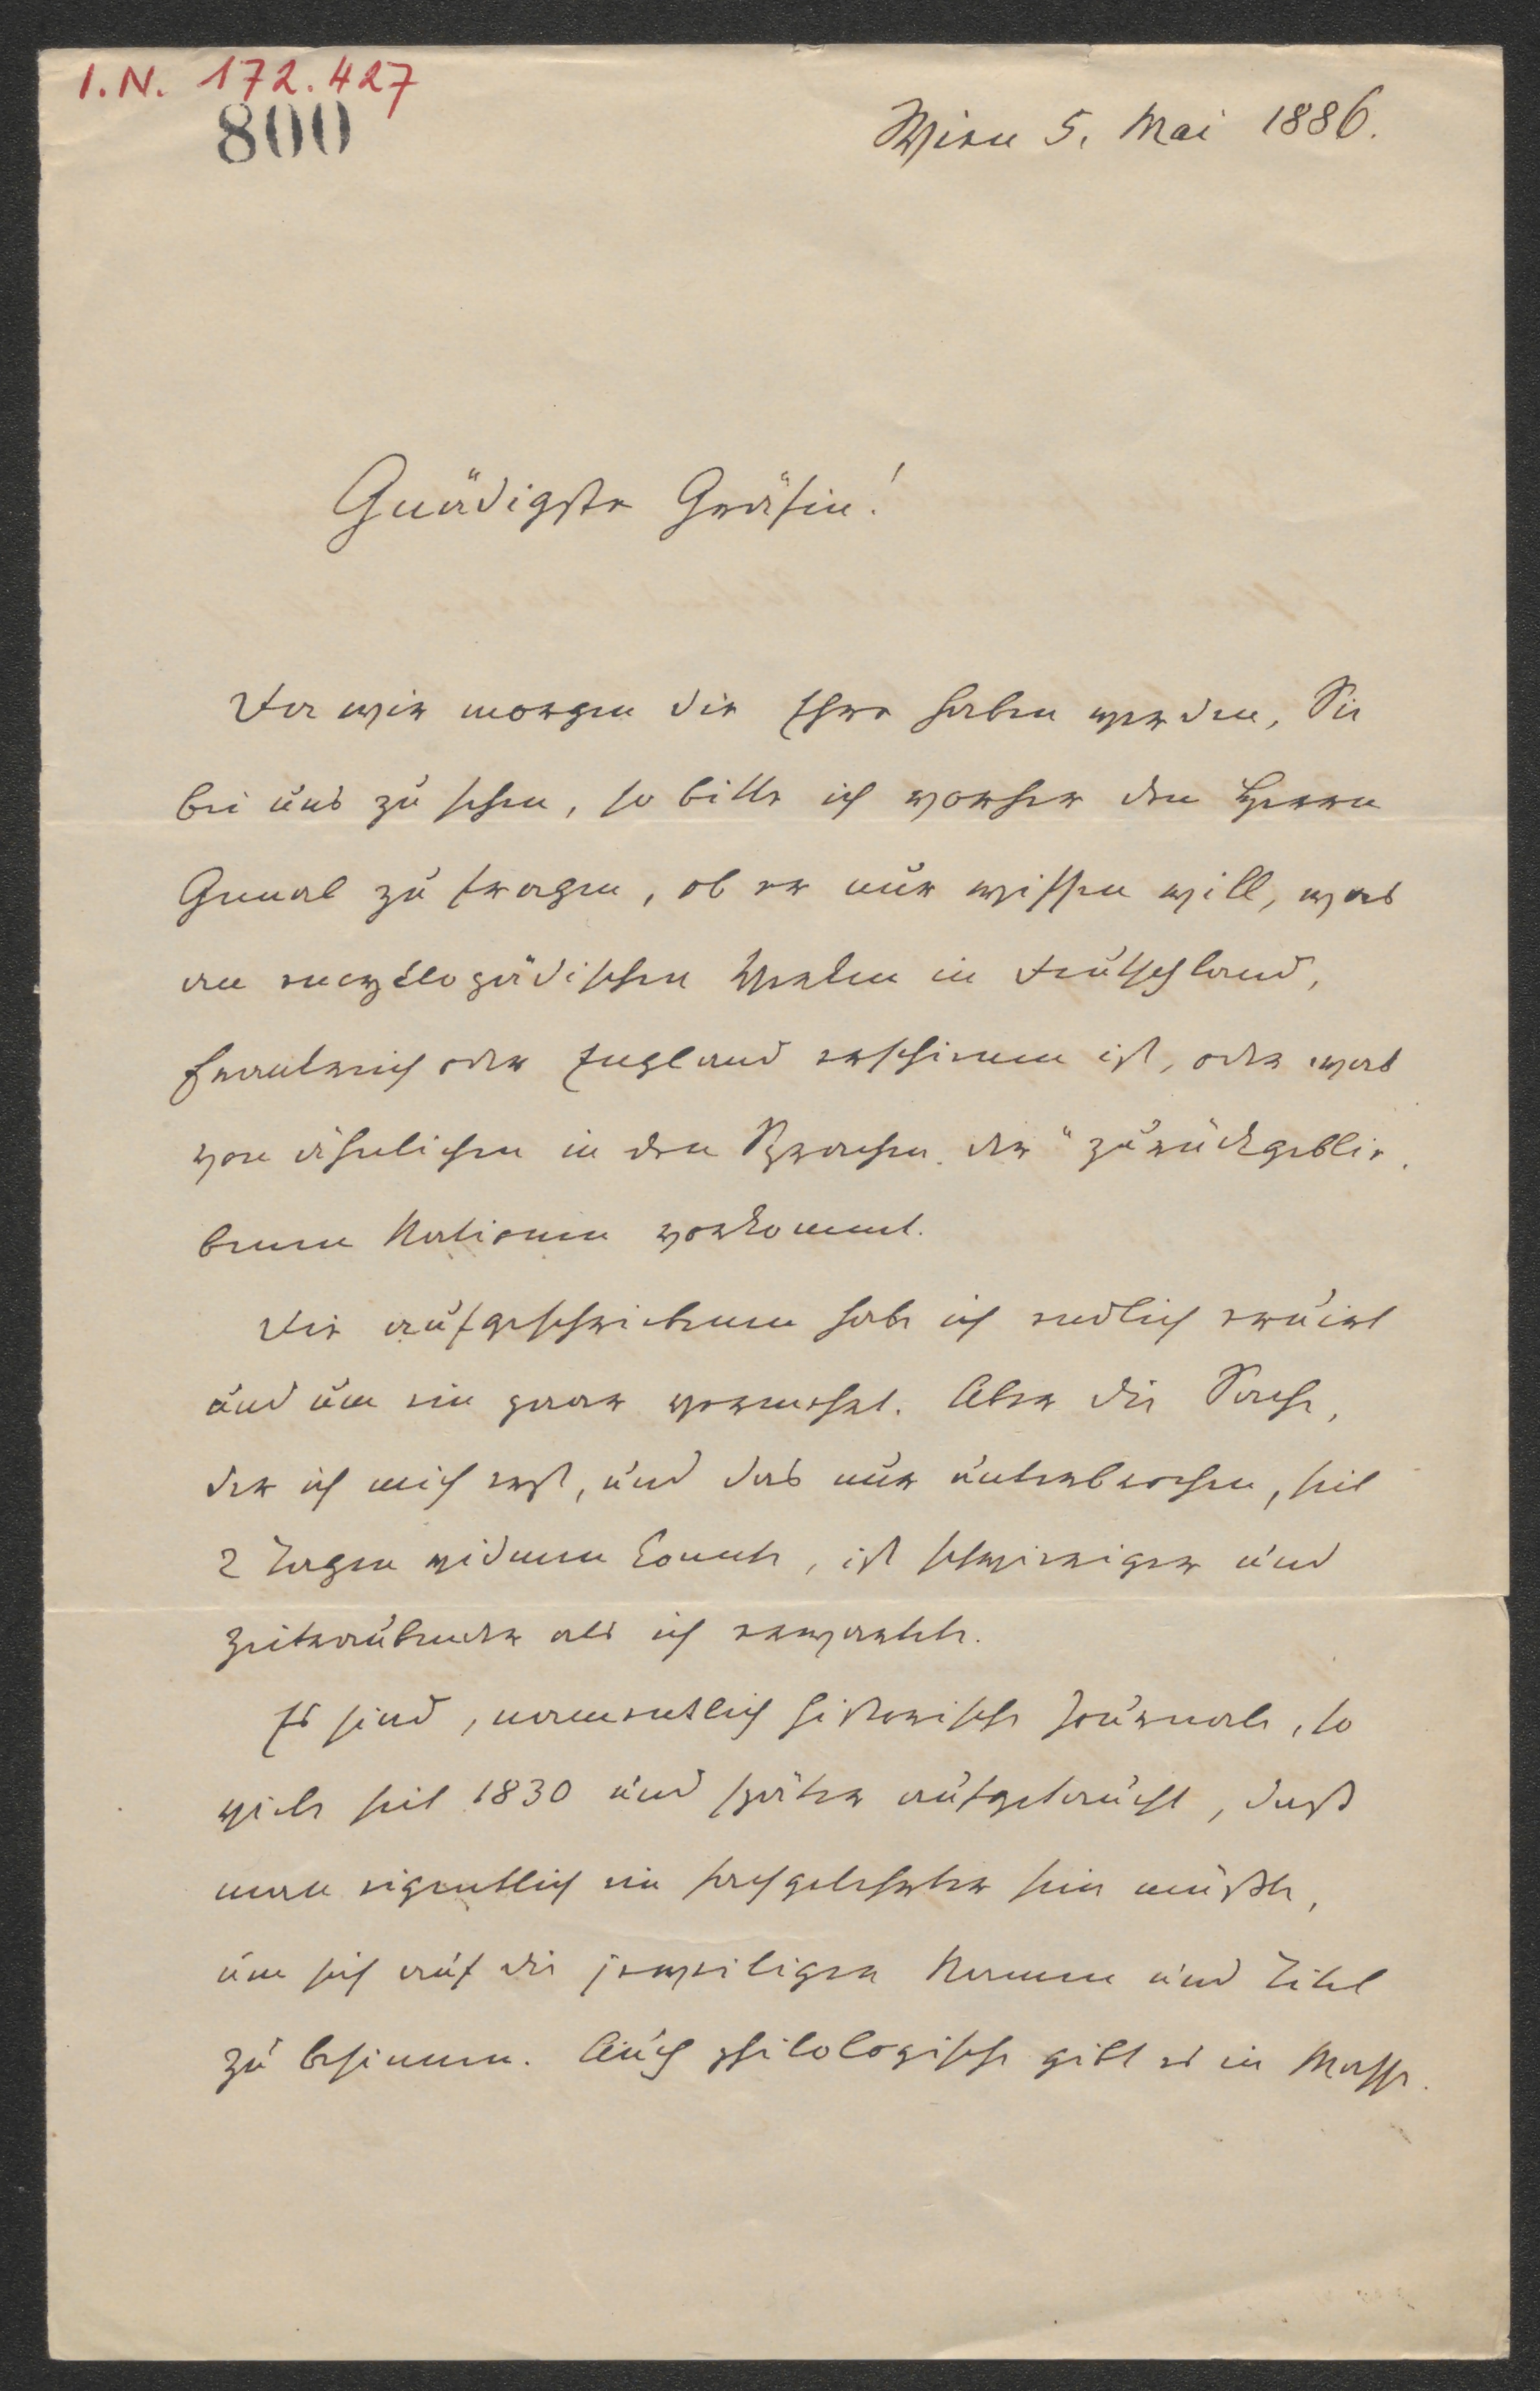 I.N. 172.427
800
Wien 5. Mai 1886.
Gnädigste Gräfin!
Da wir morgen die Ehre haben werden, Sie
bei uns zu sehen, so bitte ich vorher den Herrn
Gemal zu fragen, ob er nur wissen will, was
an encyclopädischen Werken in Deutschland,
Frankreich oder England erschienen ist, oder was
von ähnlichen in den Sprachen der "zurückgeblie-
benen Nationen vorkommt.
Die aufgeschriebenen habe ich endlich eruirt
und um ein paar vermehrt. Aber die Sache,
der ich mich erst, und das nur unterbrochen, seit
2 Tagen widmen konnte, ist schwieriger und
zeitraubender als ich erwartete.
Es sind, namentlich historische Journale, so
viele seit 1830 und später aufgetaucht, daß
man eigentlich ein Fachgelehrter sein müßte,
um sich auf die jeweiligen Namen und Titel
zu besinnen. Auch philologische gibt es in Masse.